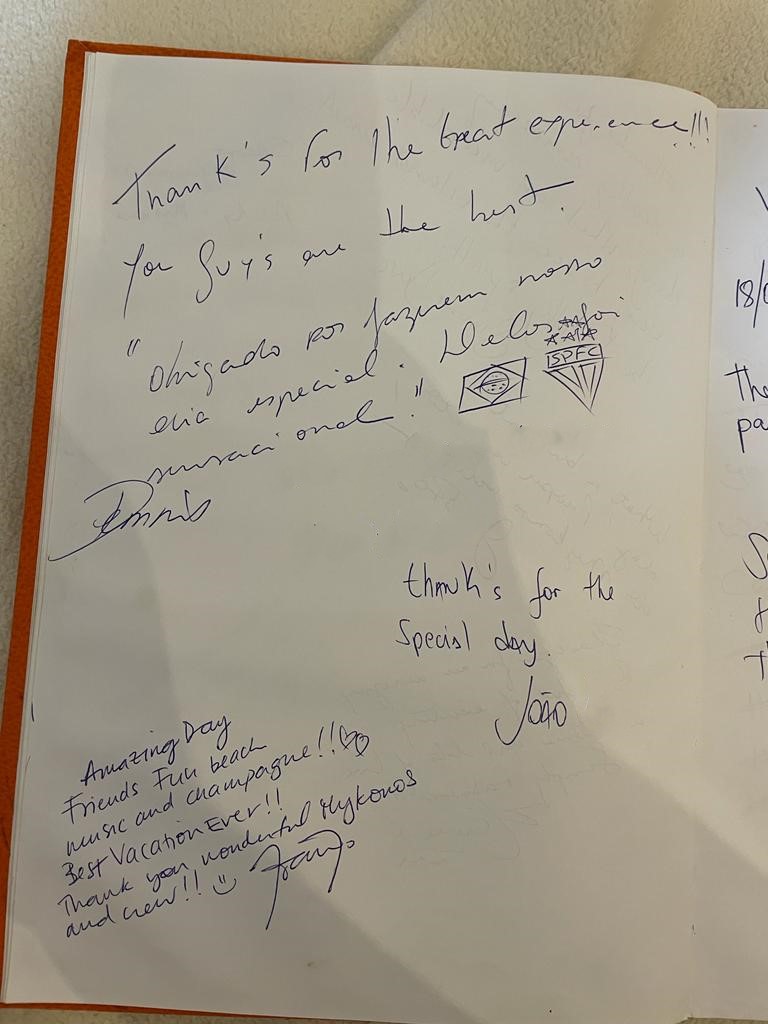 Thank's for the Great experience!!!
You Guy's are the best.
"Obrigado por fazerem nosso
dia especial. Delos foi
sensacional."
SPFC
Dennis
thank's for the
Special day.
João
Amazing Day
Friends Fun beach
music and champagne!!
Best Vacation Ever!!
Thank you wonderful Mykonos
and crew!!
18/0
the
pa